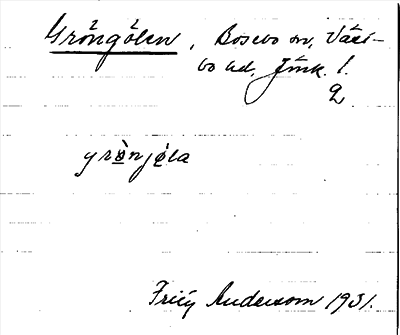 Gröngölen, Bosebo sn, Väst-
bo hd, Jönk. l.
2
grö̀njǿla
Fritz Anderson 1931.